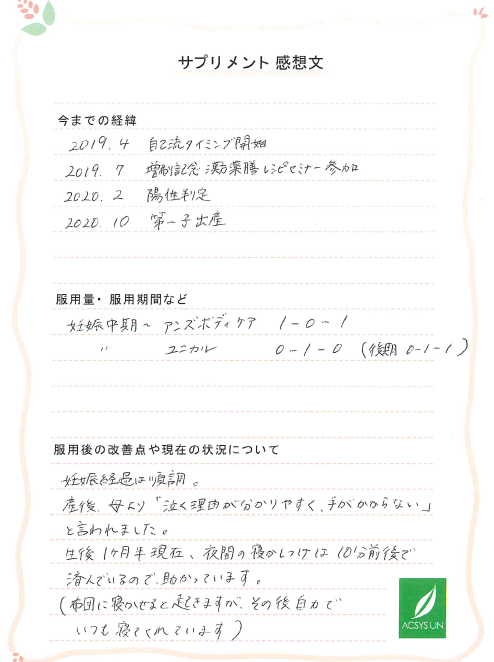 サプリメント 感想文
今までの経緯
2019. 4 自己流タイミング開始
2019. 7 増刷記念 漢方薬膳レシピセミナー参加
2020. 2 陽性判定
2020. 10 第一子出産
服用量・服用期間など
妊娠中期〜 アンズボディケア 1-0-1
〃 ユニカル 0-1-0 (後期 0-1-1)
服用後の改善点や現在の状況について
妊娠経過は順調。
産後、母より「泣く理由が分かりやすく、手がかからない」
と言われました。
生後1ヶ月半現在、夜間の寝かしつけは10分前後で
済んでいるので、助かっています。
(布団に寝かせると起きますが、その後自力で
いつも寝てくれています)
ACSYSUN